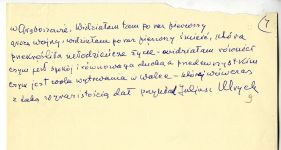 w Gręboszowie. Widziałam tam po raz pierwszy
grozę wojny i widziałam po raz pierwszy śmierć, która
przekreśliła młodzieńcze życie – widziałam również
czym jest spokój i równowaga ducha a przede wszystkim
czym jest wola wytrwania w walce – której wówczas
z całą wyrazistością dał przykład Juljusz Ulrych
7
9